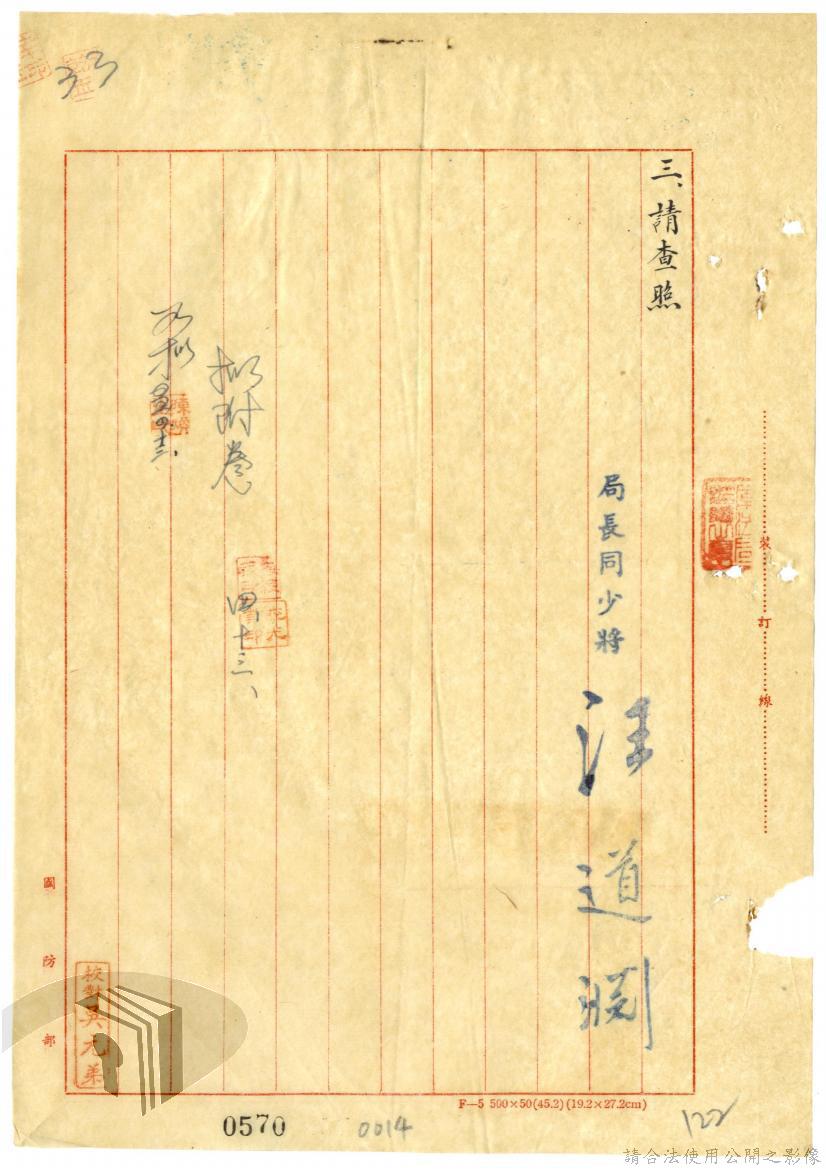 33
三、請查照
局長同少將
汪道淵
擬附卷
四、十三、
如擬
裝訂線
國防部
校對吳元第
F—5 500×50(45.2)(19.2×27.2cm)
0570
0014
122
請合法使用公開之影像